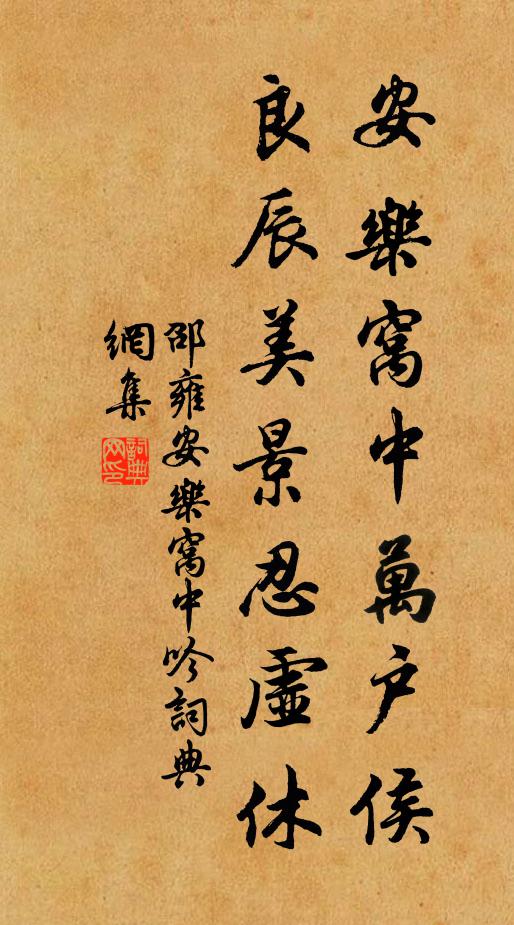 安樂窩中萬戶侯
良辰美景忍虛休
邵雍安樂窩中吟詞典
網集
詞典網印